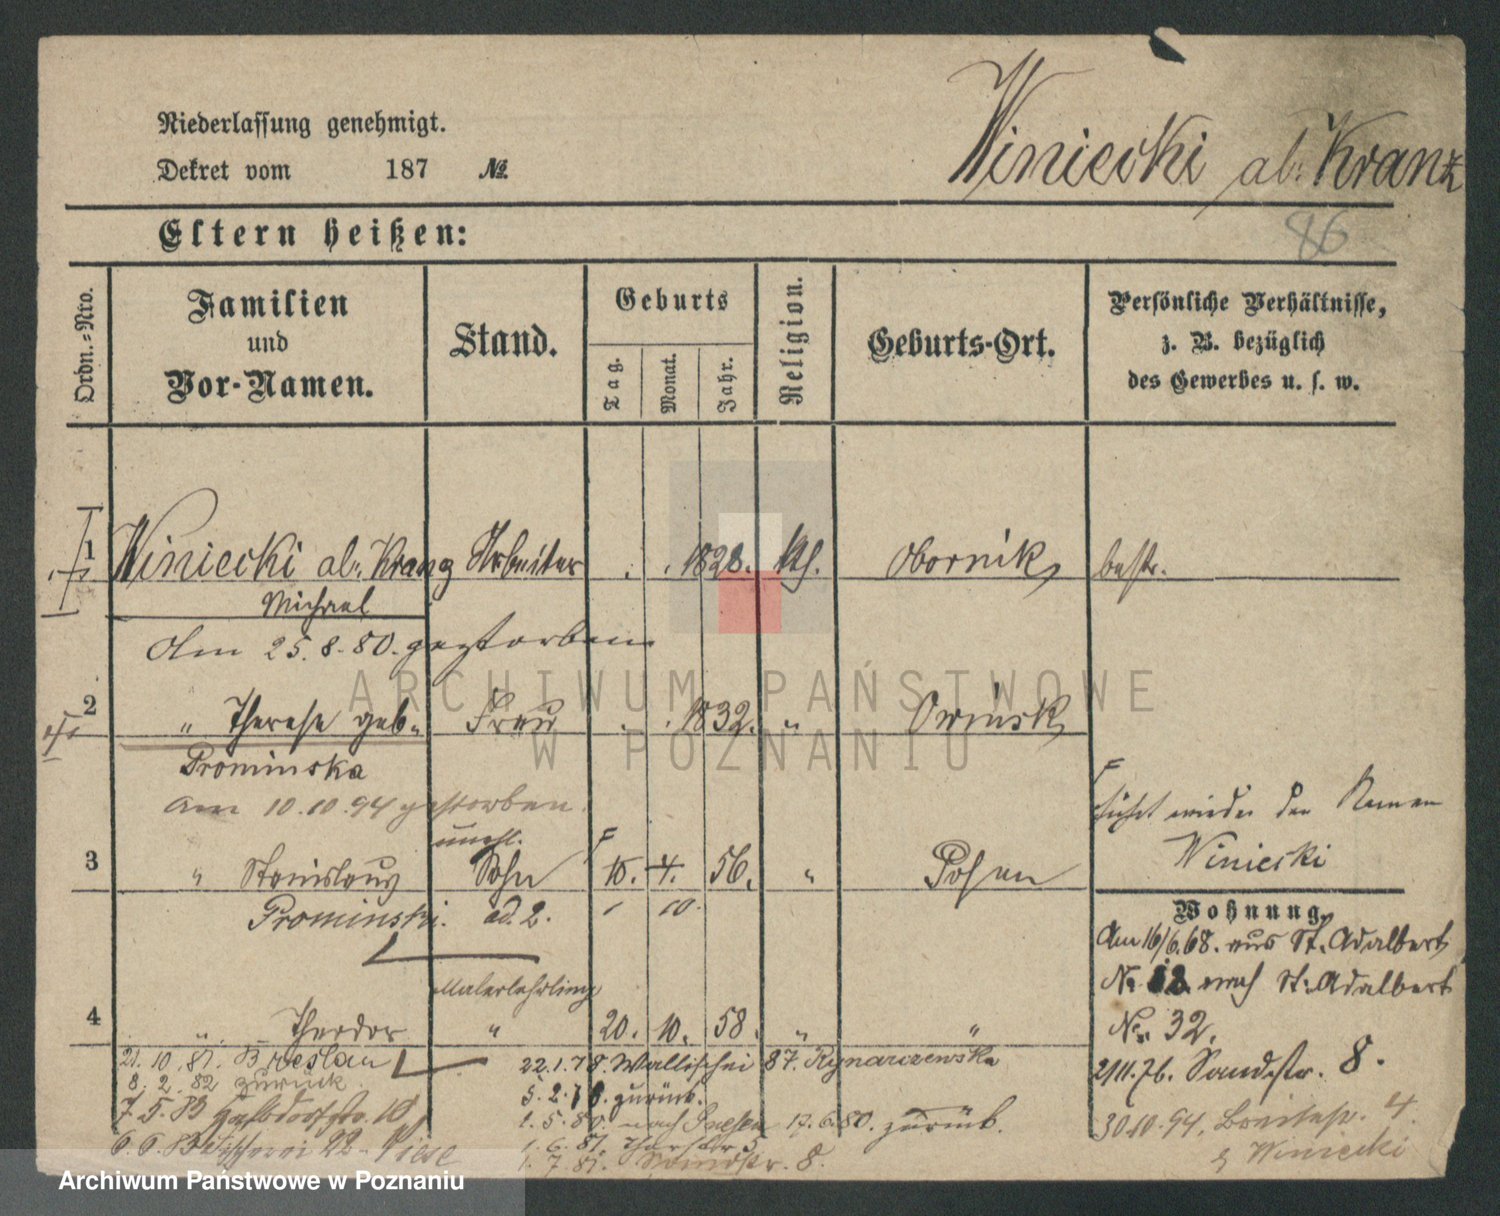 Niederlassung genehmigt.
Dekret vom 187 No.
Winiecki als Kranz
86
Eltern heißen:
Ordn.-Nro.
Familien und Vor-Namen.
Stand.
Geburts
Tag. Monat. Jahr.
Religion.
Geburts-Ort.
Persönliche Verhältnisse,
z. B. bezüglich
des Gewerbes u. s. w.
1 Winiecki als Kranz Arbeiter 1828. kth. Obornik bestr.
Michael
Am 25.8.80. gestorben
2 " Therese geb. Frau 1832. " Owinsk
Prominska
am 10.10.94 gestorben.
unehl.
führt wieder den Namen
Winiecki
3 " Stanislaus Sohn 10. 4. 56. " Posen
Prominski. ad. 2. 1 10.
Wohnung.
Am 16/6.68. aus St. Adalbert
No 18 nach St. Adalbert
No. 32.
Malerlehrling
4 " Theodor " 20. 10. 58. " "
21.10.81. Breslau
8.2.82 zurück.
7.5.83 10
6.6.83 Fischerei 22
22.1.78. Wallischei 87. Rynarzewska
5.2.78. zurück.
1.5.80. nach Gnesen 17.6.80. zurück.
1.6.81. 5
1.7.81. Sandstr. 8.
2/11.76. Sandstr. 8.
30.10.94. Breitestr. 4
Winiecki
ARCHIWUM PAŃSTWOWE
W POZNANIU
Archiwum Państwowe w Poznaniu